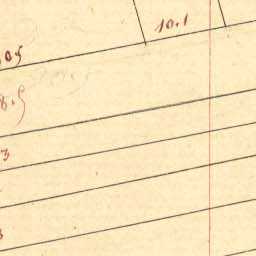 10.1
05
8.5
3
3